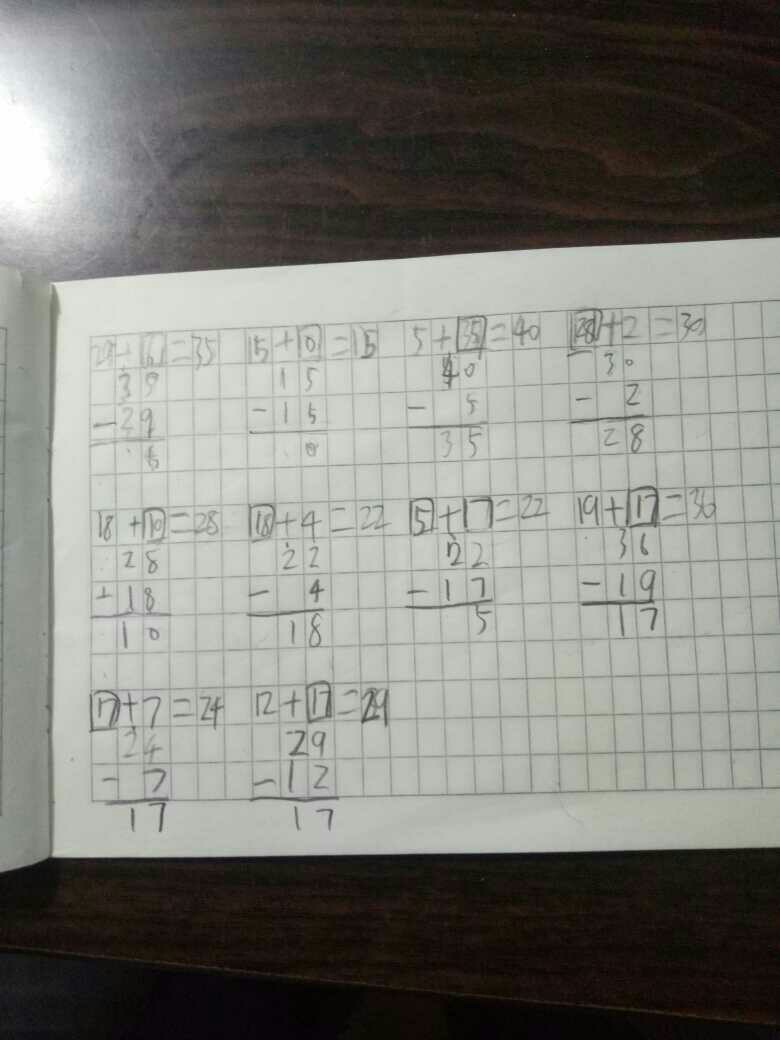 29+6=35 15+0=15 5+35=40 28+2=30
35 15 40 30
-29 -15 - 5 - 2
6 0 35 28
18+10=28 18+4=22 5+17=22 19+17=36
28 22 22 36
+18 - 4 -17 -19
10 18 5 17
17+7=24 12+17=29
24 29
- 7 -12
17 17